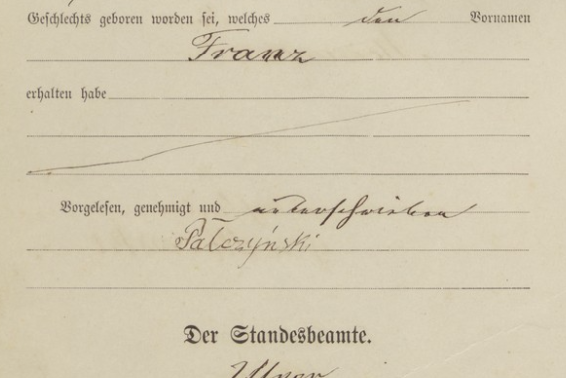 Geschlechts geboren worden sei, welches den Vornamen
Franz
erhalten habe
Vorgelesen, genehmigt und unterschrieben
Palczyński
Der Standesbeamte.